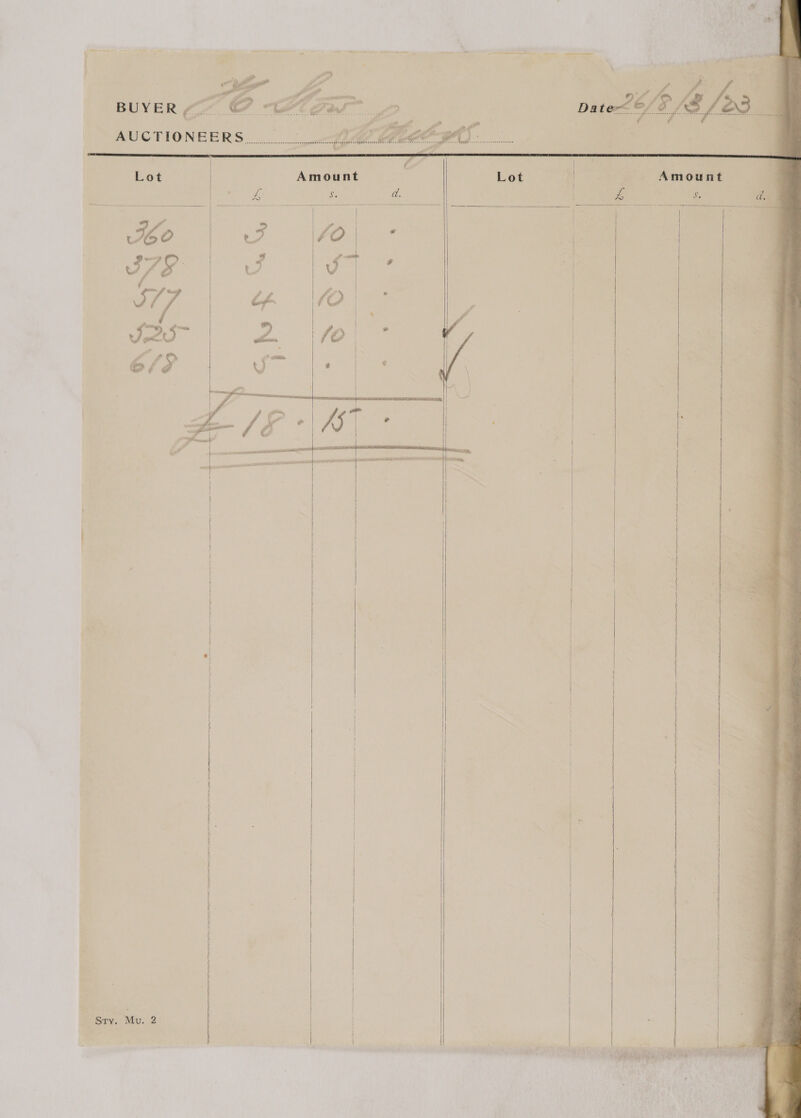 BUYER
Date 26/8/3/23
AUCTIONEERS Sothebys
Lot Amount Lot Amount
£ s. d. £ s. d.
360 3 10 •
378 3 5 •
517 4 10 •
525 2 10 •
618 5 • •
£ 18 • 15 •
Sty. Mu. 2